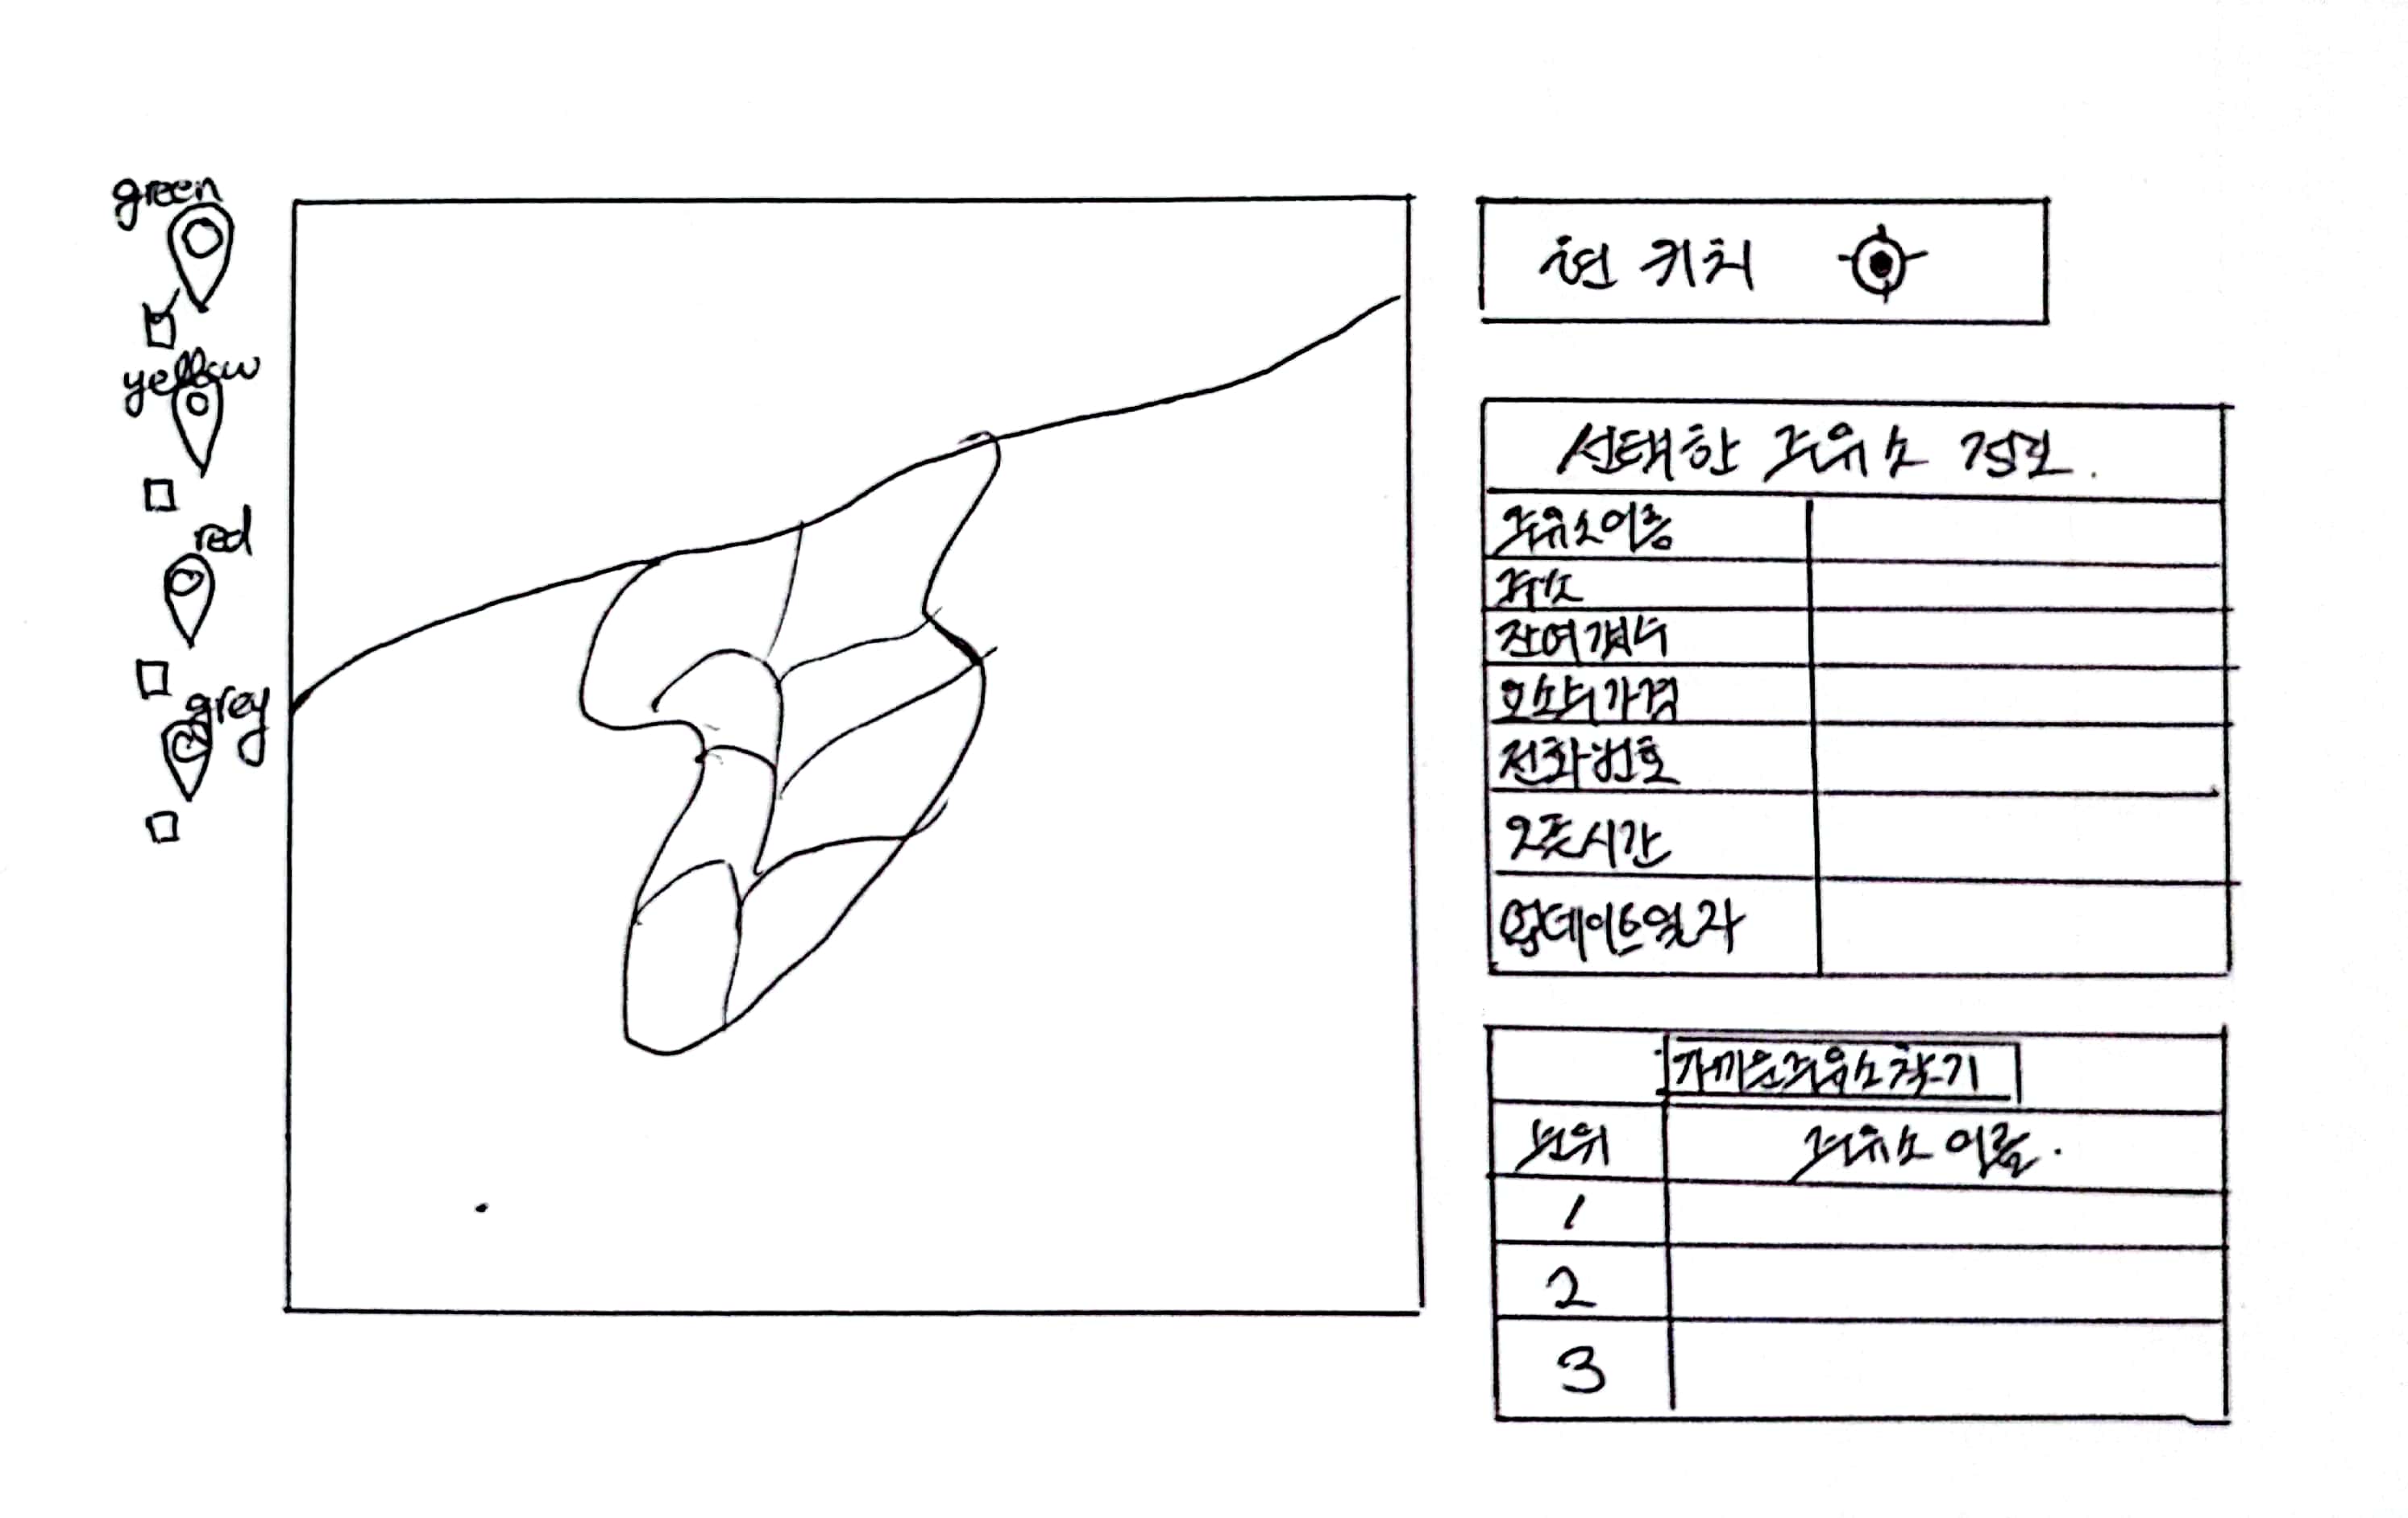 green
yellow
red
grey
현 위치
선택한 주유소 정보.
주유소이름
주소
잔여갯수
요소수가격
전화번호
오픈시간
업데이트일자
가까운주유소찾기
순위
주유소 이름.
1
2
3